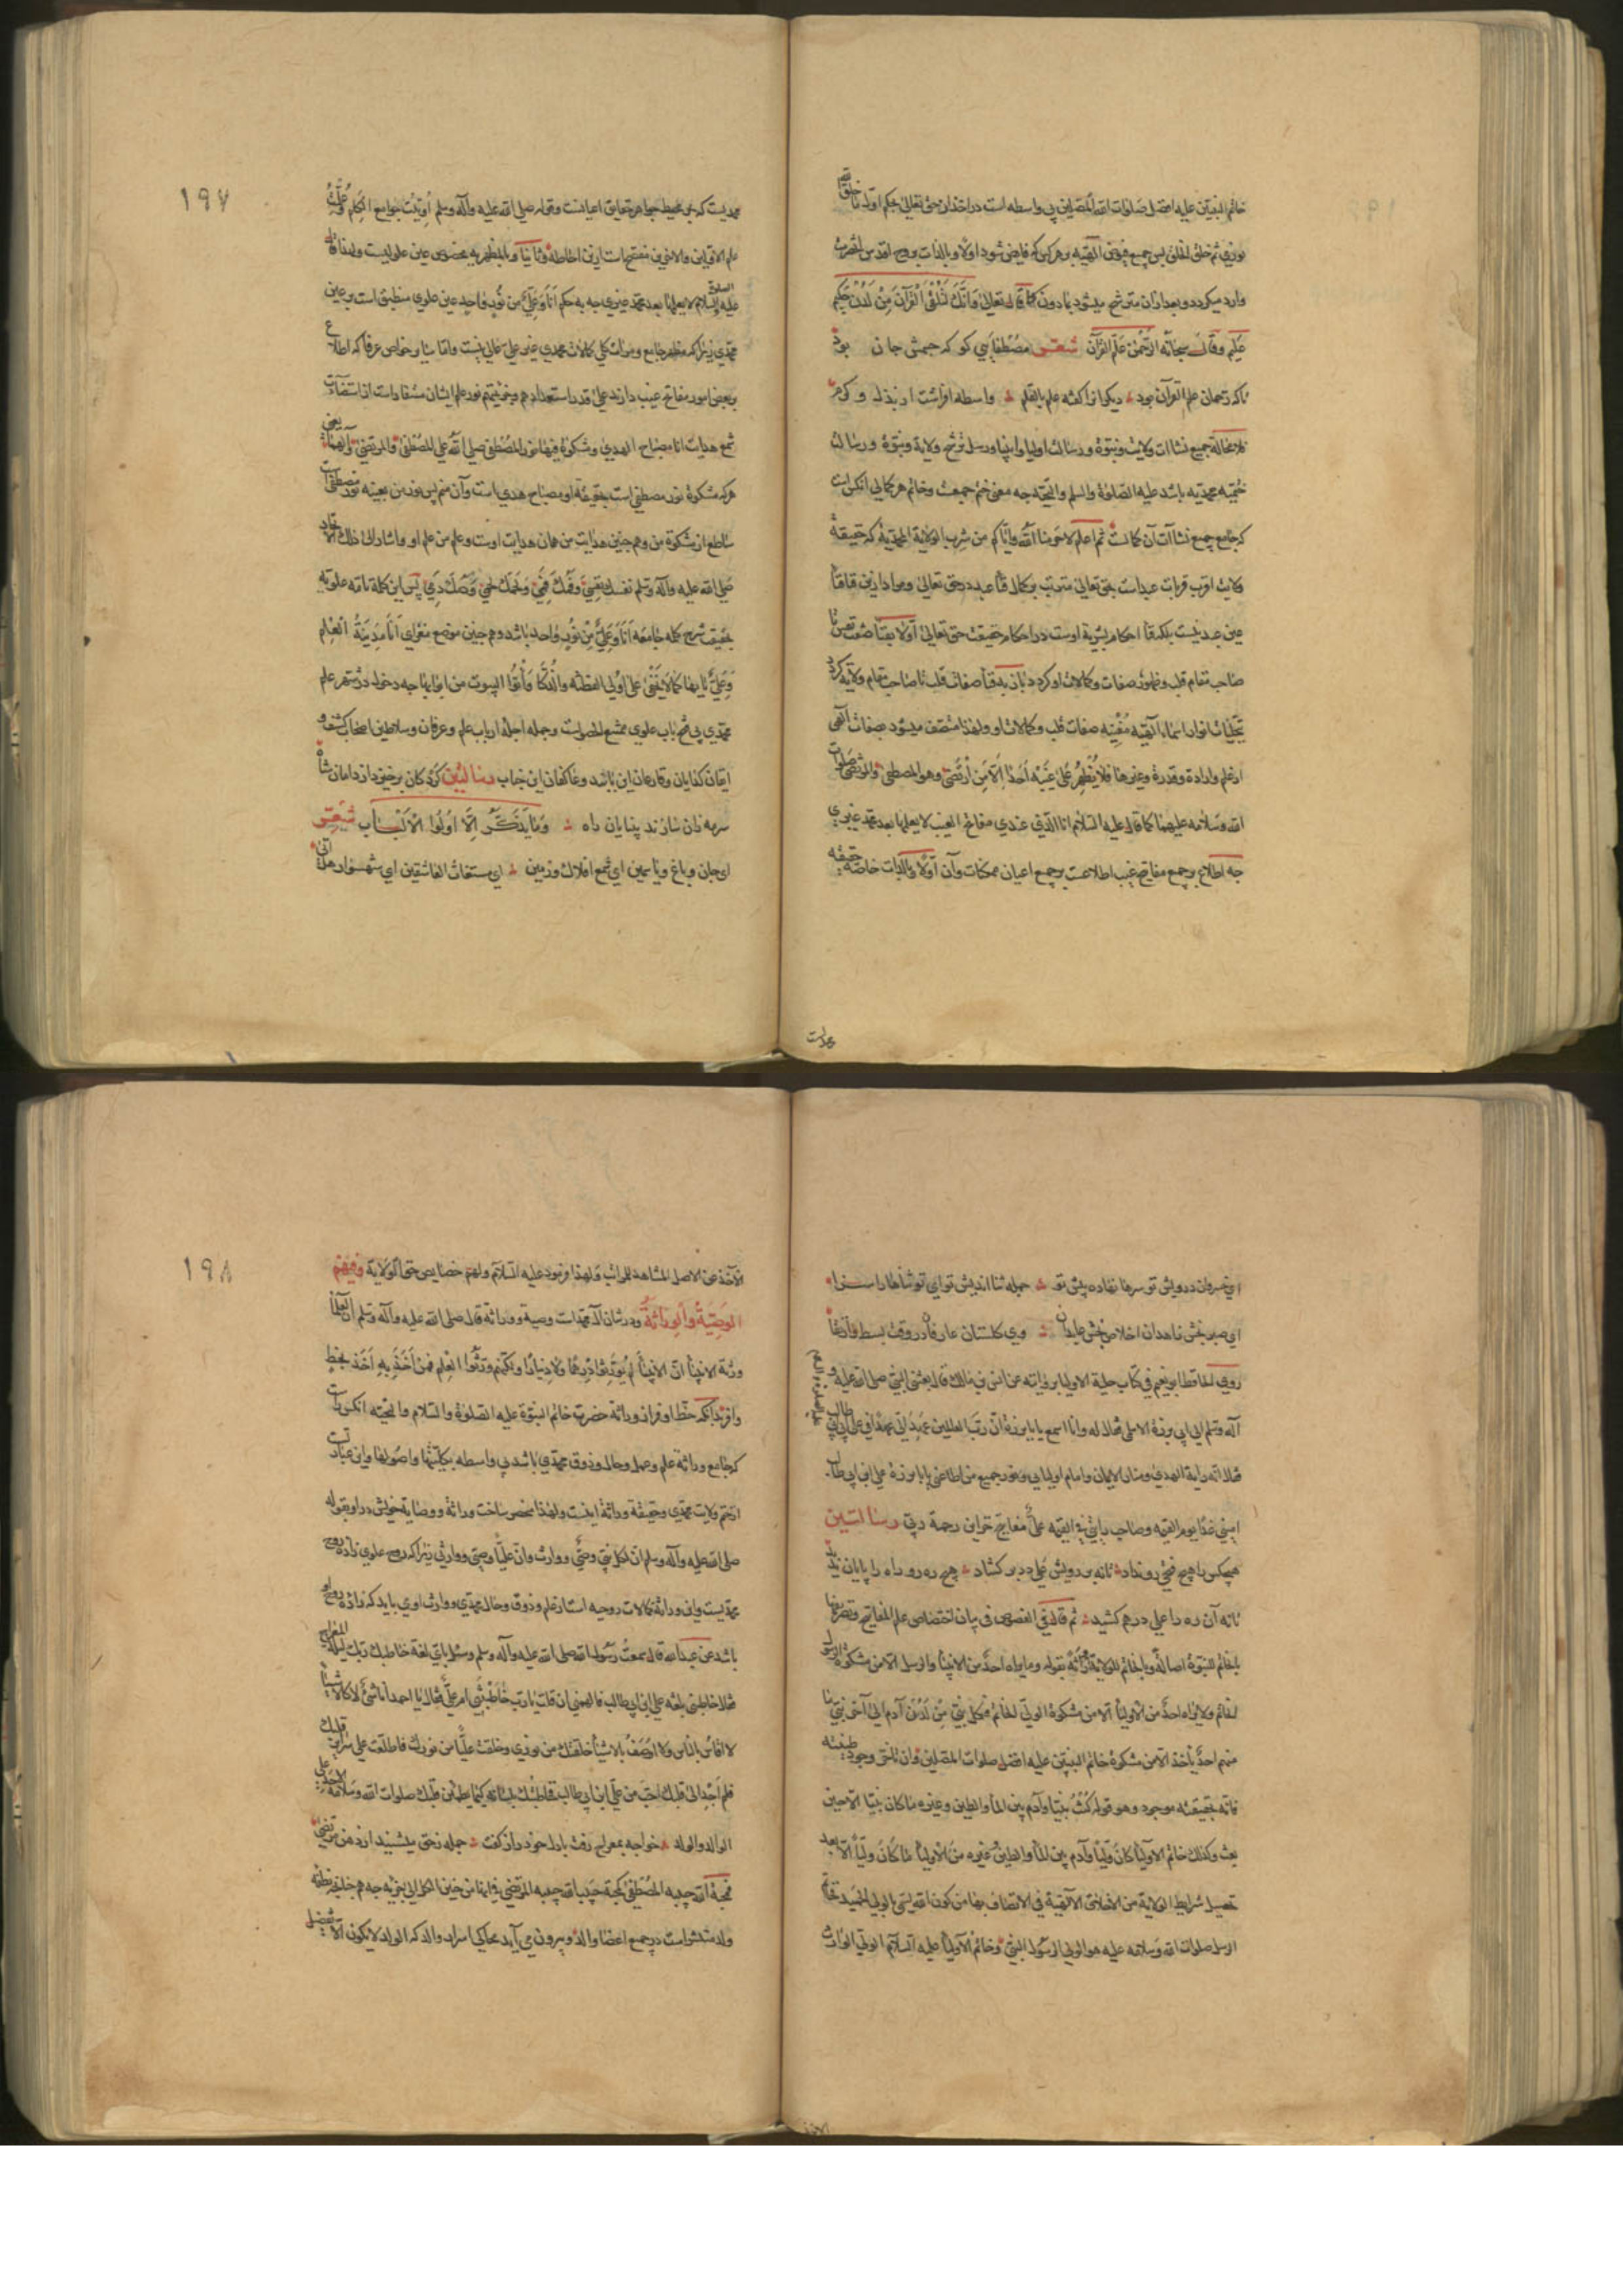 خاتم النبیین علیه افضل صلوات المصلین بی واسطه است در اخذ از حق تعالی بحکم اول ما خلق الله
نوری ثم خلق الخلق پس جمیع فیوض الهیه بر هر کس که فایض شود اولا و بالذات بروح اقدس آنحضرت
وارد میگردد و بعد از آن مترشح میشود بمادون کما قال تعالی وَاِنَّكَ لَتُلَقَّى الْقُرآنَ مِنْ لَدُنْ حَكِیم
عَلیم وقال سبحانه الرَّحْمن عَلَّمَ القُرآن شعر مصطفایی کو که جسمش جان بود
تا که رحمان علم القرآن بود دیگرانرا گفته علم بالقلم واسطه افراشت از بذل و کرم
فلا محالة جمیع نشاات ولایت و نبوة و رسالت اولیا و انبیا و رسل ترشح ولایة و نبوة و رسالت
ختمیه محمدیه باشد علیه الصلوة والسلم والتحیه چه معنی ختم جمعیت و خاتم هر کمالی آنکس است
که جامع جمیع نشاات آن کمالست ثم اعلم لاخوننا الله وایاکم من شرب الولایة المحمدیة که حقیقة
ولایت اقرب قربات عبد است بحق تعالی مترتب بر کمال فنا عبد در حق تعالی و مراد ازین فنا فنا
عین عبد نیست بلکه فنا احکام بشریة اوست در احکام حقیقت حق تعالی اولا بفنا صفت نفس تا
صاحب مقام قلب و ظهور صفات و کمالات او کردد بان بدفنا صفات قلب تا صاحب مقام ولایة کردد
تجلیات انوار اسماء الهیه مفنیه صفات قلب و کمالات او ولهذا متصف میشود بصفات الهی
از علم و ارادة و قدرة و غیرها فَلا یُظْهِرُ عَلی غَیْبِه اَحَداً اِلّا مَنِ ارْتَضی وهو المصطفی والمرتضی صلوات
الله وسلامه علیهما کما قال علیه السلام انا الذی عندی مفاتح الغیب لا یعلمها بعد محمد غیری
چه اطلاع بر جمیع مفاتیح غیب اطلاعست بر جمیع اعیان ممکنات وآن اولا وبالذات خاصه حقیقه
محمدیست
۱۹۷
محمدیست که بحر محیط بجواهر حقایق اعیانست وقوله صلی الله علیه وآله وسلم اُوتیتُ جوامع الکلم وعُلِّمتُ
علم الاولین والاخرین مفتح است ازین احاطه وثانیا وبالمظهریه مخصوص عین علویست ولهذا قال
علیه السلام لا یعلمها بعد محمد غیری چه به حکم اَنَا وَعَلیٌّ مِن نُورٍ واحِد عین علوی منطبق است بر عین
محمدی زیرا که مظهر جامع ومرات کلی کمالات محمدی غیر علی عالی نیست واما سایر خواص عرفا که اطلاع
بر بعض امور مفاتح غیب دارند علی قدر استعدادهم ونمیمتهم نور علم ایشان مستفاد است از استضآت
شمع هدایت انا مصباح الهدی ومشکوة فیها نور المصطفی صلی الله علی المصطفی والمرتضی وآلهما یعنی
هر که مشکوة نور مصطفی است بحقیقة او مصباح هدی است وآن منم پس نور من بعینه نور مصطفی است
ساطع از مشکوة من وهم چنین هدایت من همان هدایت اوست وعلم من علم او واشار الی ذلك الاتحاد
صَلی الله علیه وآله وسلم نفسك نفسِی وَلَحمُك لحمی وَدَمُك دَمِی پس این کلمة تامه علویه
بحقیقت شرح کلمه جامعه اَنَا وَعَلِیٌّ مِنْ نُورٍ واحِد باشد وهم چنین موضح مغزای اَنَا مَدِینَةُ العِلم
وَعَلیٌّ بابها کما لا یَخْفی عَلی اولی الفطنه والذُّکا وَاْتُوا البیوت من ابوابها چه دخول در شهر علم
محمدی بی فتح باب علوی ممتنع الحصول است وجمله اجله ارباب علم وعرفان وسلاطین اصحاب کشف و
ایقان کدایان وقارعان این بابند وعاکفان این جناب رسالتین کرد کان برخیزد از دامان شاه
سرمه ذان سازند بینایان راه وَمَا یَذَّکَّرُ اِلَّا اُولُوا الْاَلْباب شعر
ای جان وباغ ویاسمین ای شمع افلاك وزمین ای مستغاث العاشقین ای شهسوار هل اتی
ای خسروان درویش تو سرها نهاده پیش تو جمله ثنا اندیش تو ای تو ثناها را سزا
ای صبر بخش زاهدان اخلاص بخش عابدان وی کلستان عارفان در وقت بسط والتقا
روی الحافظ ابو نعیم فی کتاب حلیة الاولیا بروایته عن انس بن مالك قال بعثنی النبی صلی الله علیه و
آله وسلم الی ابی برزة الاسلمی فقال له وانا اسمع یا ابا برزة انّ ربّ العلمین عهد الیّ عهداً فی علی بن ابی طالب
فقال انه رایة الهدی ومنار الایمان وامام اولیایی ونور جمیع من اطاعنی یا ابا برزة علی ابن ابی طالب
امینی غدا یوم القیمه وصاحب رایتی فی القیمه علیٌّ مفاتیح خزاین رحمة ربی رسالتین
هیچکس را هیچ فتحی رو نداد تا نه بر رویش علی در بر کشاد هیچ ره رو راه را پایان ندید
تا نه آن ره را علی در هم کشید ثم قال فی الفصوص فی بیان اختصاص علم المفاتیح وتصرفها
بخاتم النبوة اصالةً وبخاتم الولایة وراثةً بقوله وما یراه احدٌ من الانبیا والرسل الا من مشکوة الرسول
الخاتم ولا یراه احدٌ من الاولیا الا من مشکوة الولی الخاتم فکل نبیّ مِن لَدُن آدم الی آخر نبیّ ما
منهم احدٌ یأخذ الا من مشکوة خاتم النبیین علیه افضل صلوات المصلین وان تاخر وجود طینته
فانّه بحقیقته موجود وهو قوله کُنتُ نبیّا وآدم بین المآ والطین وغیره ما کان نبیا الا حین
بعث وکذلك خاتم الاولیا کان وَلیّاً وآدم بین المآ والطین وغیره من الاولیا ما کان ولیّاً الا بعد
تحصیل شرایط الولایة من الاخلاق الالهیة فی الاتصاف بها من کون الله یسمی بالولی الحمید فخاتم
الرسل صلوات الله وسلامه علیه هو الولی الرسول النبی وخاتم الاولیا علیه السلام الولی الوارث
۱۹۸
الآخذ عن الاصل المشاهد للمراتب ولهذا فرمود علیه السلام ولهم خصایص حق الولایة وفیهم
الوصیةُ والوِراثةُ ودر شان آل محمد است وصیة ووراثة قال صلی الله علیه وآله وسلم ان العلمآ
ورثة الانبیا انّ الانبیآ لم یُورِّثوا دِرهَماً ولا دیناراً ولکنهم ورّثوا العِلم فمن اَخَذَ بِهِ اَخَذ بحظٍ
وافر بدانکه حظ اوفر از وراثة حضرت خاتم النبوة علیه الصلوة والسلام والتحیه آنکس راست
که جامع وراثة علم وعمل وحال وذوق محمدی باشد بی واسطه بکلیّتها واصولها واین عبارتست
از ختم ولایت محمدی وحقیقة وراثة اینست ولهذا منحصر ساخت وراثة ووصایة خویش در او بقوله
صلی الله علیه وآله وسلم ان لکل نبیّ وصیٌّ ووارث وانّ علیّاً وصیّی ووارثی زیرا که روح علوی زاده روح
محمدیست واین وراثة کمالات روحیه است از علم وذوق وحال محمدی ووارث اوی باید که زاده روح او
باشد عن عبدالله قال سمعتُ رَسُول الله صلی الله علیه وآله وسلم وسئل بای لغة خاطبك ربك لیلة المعراج
فقال خاطبنی بلغه علی ابن ابی طالب فالهمنی ان قلت یا رب خاطبتنی ام علیٌّ فقال یا احمد انا شئ لا کالاشیآ
لا اقاس بالناس ولا اوصَفُ بالاشیآ خلقتك من نوری وخلقت علیّاً من نورك فاطلعت علی سرایر قلبك
فلم اَجِد الی قلبك احبّ من علی ابن ابی طالب فخاطبتك بلسانه کیما یطمئن قلبك صلوات الله وسلامه علی
الوالد والولد خواجه بمعراج رفت بادل خود راز کفت جمله زحق میشنید از دهن مرتضی